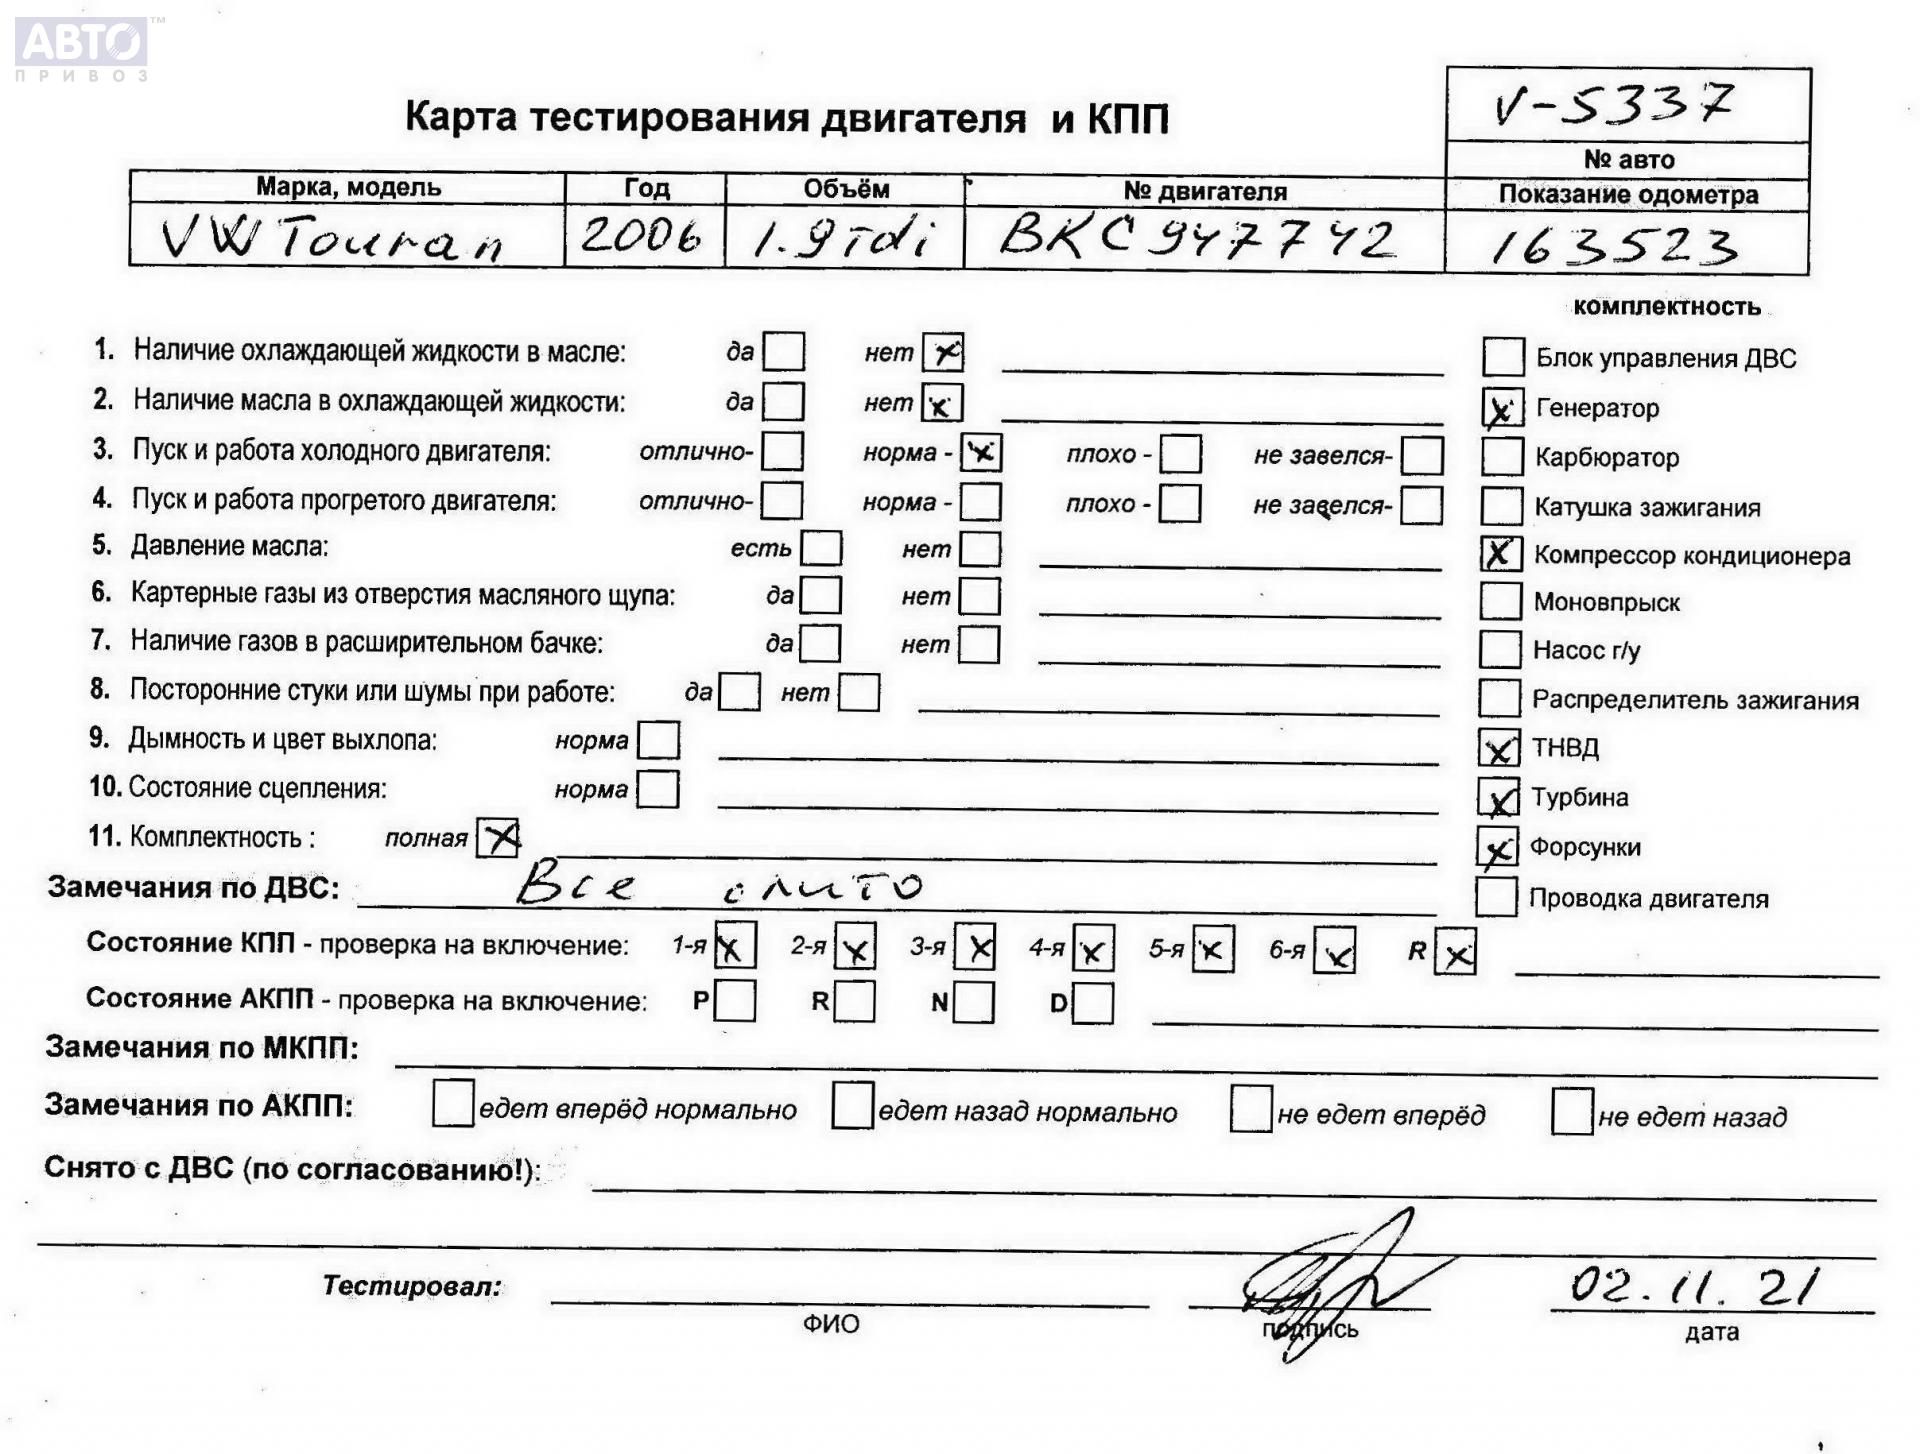 АВТО™
ПРИВОЗ
V-5337
Карта тестирования двигателя и КПП
№ авто
Марка, модель Год Объём № двигателя Показание одометра
VW Touran 2006 1.9 Tdi BKC 947742 163523
комплектность
1. Наличие охлаждающей жидкости в масле: да нет x Блок управления ДВС
2. Наличие масла в охлаждающей жидкости: да нет x x Генератор
3. Пуск и работа холодного двигателя: отлично- норма - x плохо - не завелся- Карбюратор
4. Пуск и работа прогретого двигателя: отлично- норма - плохо - не завелся- Катушка зажигания
5. Давление масла: есть нет x Компрессор кондиционера
6. Картерные газы из отверстия масляного щупа: да нет Моновпрыск
7. Наличие газов в расширительном бачке: да нет Насос г/у
8. Посторонние стуки или шумы при работе: да нет Распределитель зажигания
9. Дымность и цвет выхлопа: норма x ТНВД
10. Состояние сцепления: норма x Турбина
11. Комплектность : полная x x Форсунки
Замечания по ДВС: Все слито Проводка двигателя
Состояние КПП - проверка на включение: 1-я x 2-я x 3-я x 4-я x 5-я x 6-я x R x
Состояние АКПП - проверка на включение: P R N D
Замечания по МКПП:
Замечания по АКПП: едет вперёд нормально едет назад нормально не едет вперёд не едет назад
Снято с ДВС (по согласованию!):
Тестировал: 02.11.21
ФИО подпись дата